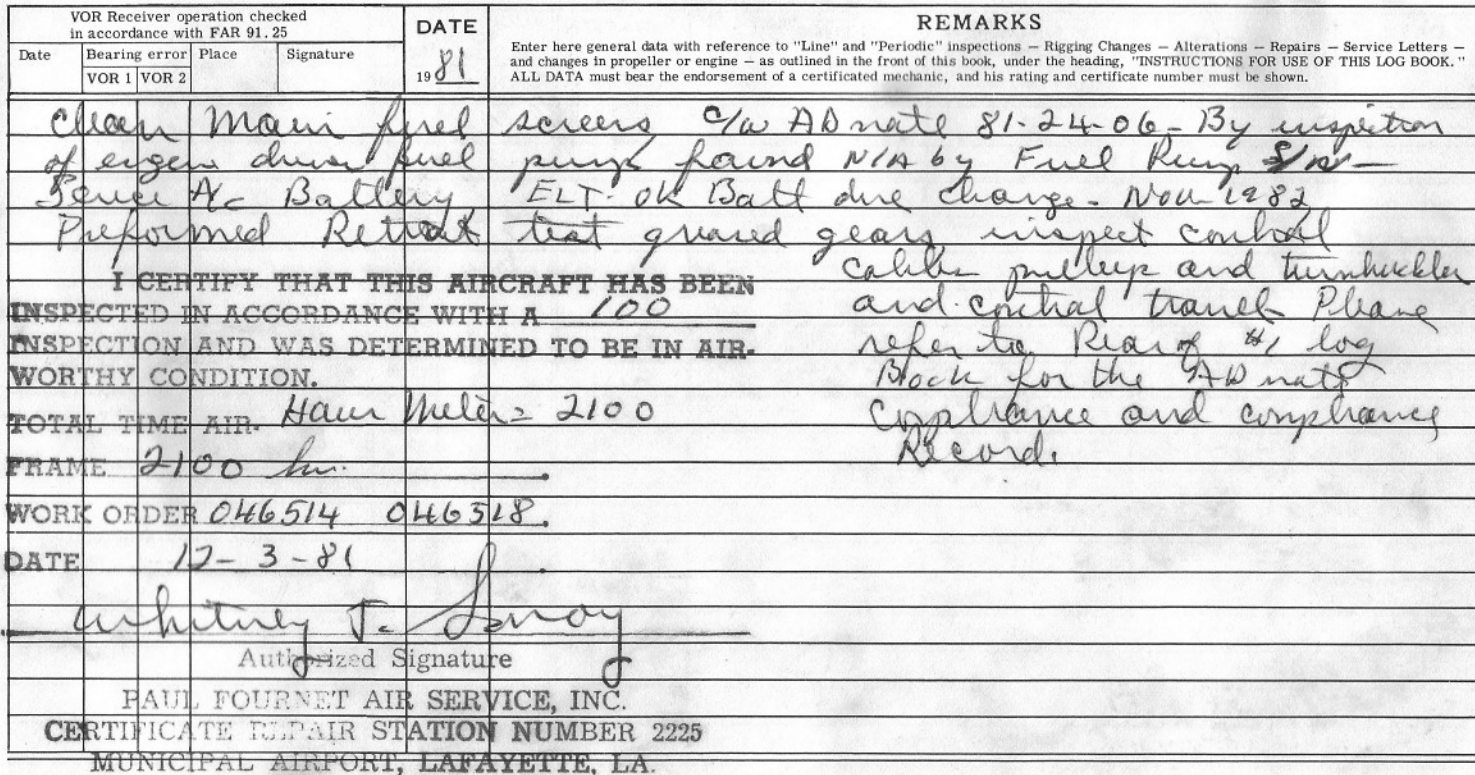 VOR Receiver operation checked
in accordance with FAR 91.25
Date Bearing error Place Signature
VOR 1 VOR 2
DATE
19 81
REMARKS
Enter here general data with reference to "Line" and "Periodic" inspections — Rigging Changes — Alterations — Repairs — Service Letters —
and changes in propeller or engine — as outlined in the front of this book, under the heading, "INSTRUCTIONS FOR USE OF THIS LOG BOOK."
ALL DATA must bear the endorsement of a certificated mechanic, and his rating and certificate number must be shown.
Clean Main fuel screens C/W AD note 81-24-06- By inspection
of engine driven fuel pump found N/A by Fuel Pump S/N-
A/c Battery ELT- OK Batt due change- Nov-1982
Preformed Retract test greased gears, inspect control
cables pulleys and turnbuckles
and control travel Please
refer to Rear of #1 log
Book for the AD note
compliance and compliance
Record.
I CERTIFY THAT THIS AIRCRAFT HAS BEEN
INSPECTED IN ACCORDANCE WITH A 100
INSPECTION AND WAS DETERMINED TO BE IN AIR-
WORTHY CONDITION.
TOTAL TIME AIR- Hour Meter= 2100
FRAME 2100 hr.
WORK ORDER 046514 046518.
DATE 12-3-81
Whitney J.
Authorized Signature
PAUL FOURNET AIR SERVICE, INC.
CERTIFICATE REPAIR STATION NUMBER 2225
MUNICIPAL AIRPORT, LAFAYETTE, LA.